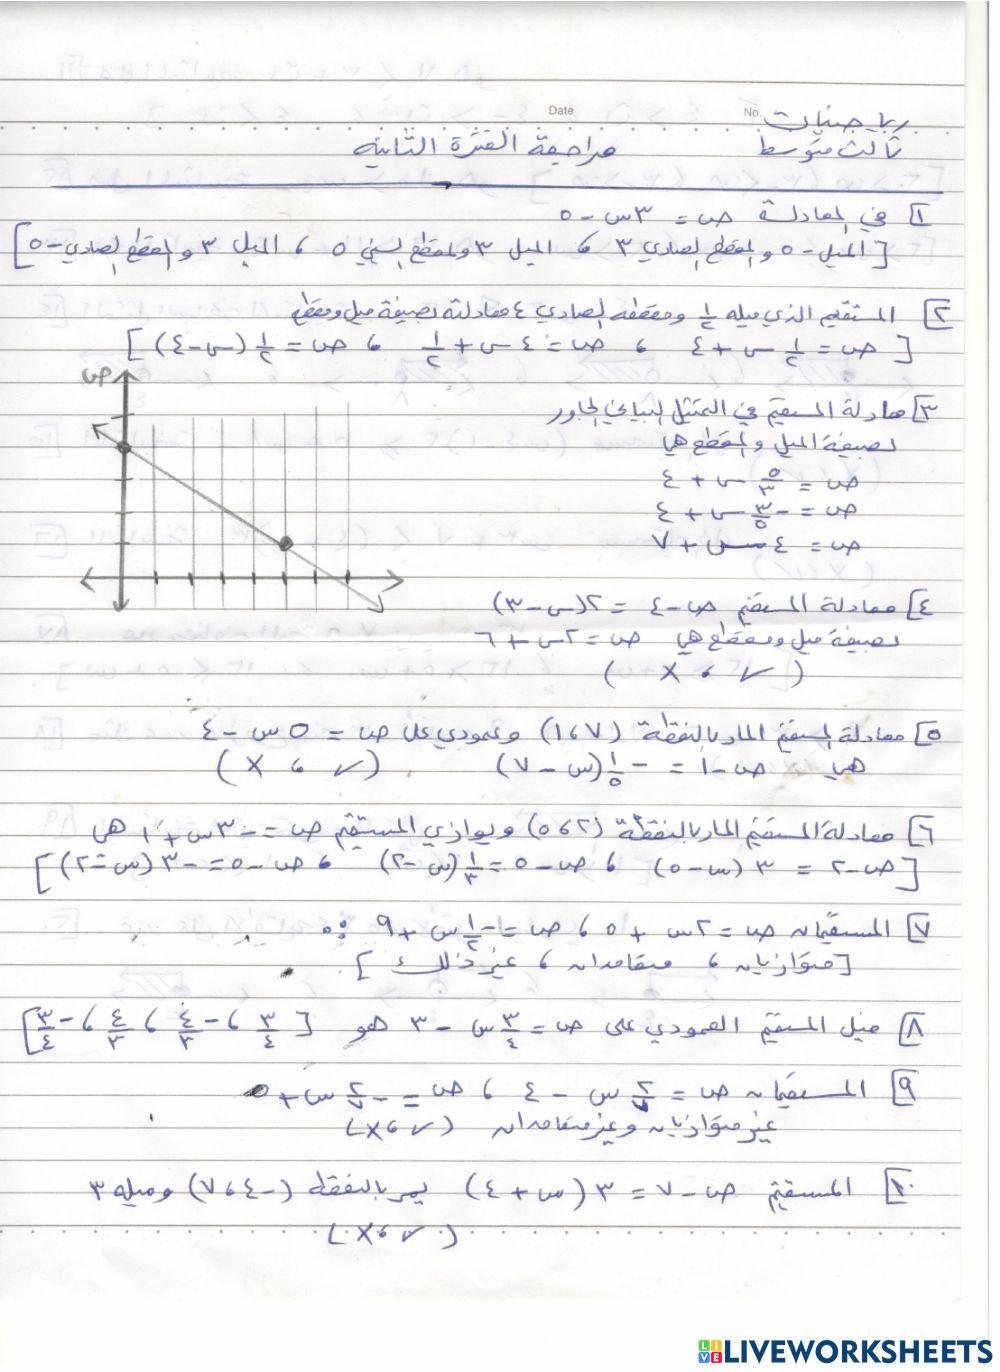 Date
No.
رياضيات
ثالث متوسط
مراجعة الفترة الثانية
١] في المعادلة ص = ٣س - ٥
[الميل -٥ والمقطع الصادي ٣ ، الميل ٣ والمقطع السيني ٥ ، الميل ٣ والمقطع الصادي -٥]
٢] المستقيم الذي ميله ١/٢ ومقطعه الصادي ٤ معادلته بصيغة ميل ومقطع
[ص = ١/٢ س + ٤ ، ص = ٤س + ١/٢ ، ص = ١/٢ (س - ٤)]
ص
٣] معادلة المستقيم في التمثيل البياني المجاور
بصيغة الميل والمقطع هي
ص = ٥/٣ س + ٤
ص = -٣/٥ س + ٤
ص = ٤س + ٧
٤] معادلة المستقيم ص - ٤ = ٢(س - ٣)
بصيغة ميل ومقطع هي ص = ٢س + ٦
(✓ ، X)
٥] معادلة المستقيم المار بالنقطة (٧،١) وعمودي على ص = ٥س - ٤
هي ص - ١ = -١/٥ (س - ٧) (✓ ، X)
٦] معادلة المستقيم المار بالنقطة (٢،٥) ويوازي المستقيم ص = -٣س + ١ هي
[ص - ٢ = ٣(س - ٥) ، ص - ٥ = ١/٣ (س - ٢) ، ص - ٥ = -٣(س - ٢)]
٧] المستقيمان ص = ٢س + ٥ ، ص = -١/٢ س + ٩
[متوازيان ، متعامدان ، غير ذلك]
٨] ميل المستقيم العمودي على ص = ٣/٤ س - ٣ هو [٣/٤ ، -٤/٣ ، ٤/٣ ، -٣/٤]
٩] المستقيمان ص = ٢/٧ س - ٤ ، ص = -٢/٧ س + ٥
غير متوازيان وغير متعامدان (✓ ، X)
١٠] المستقيم ص - ٧ = ٣(س + ٤) يمر بالنقطة (-٤،٧) وميله ٣
(✓ ، X)
LIVEWORKSHEETS